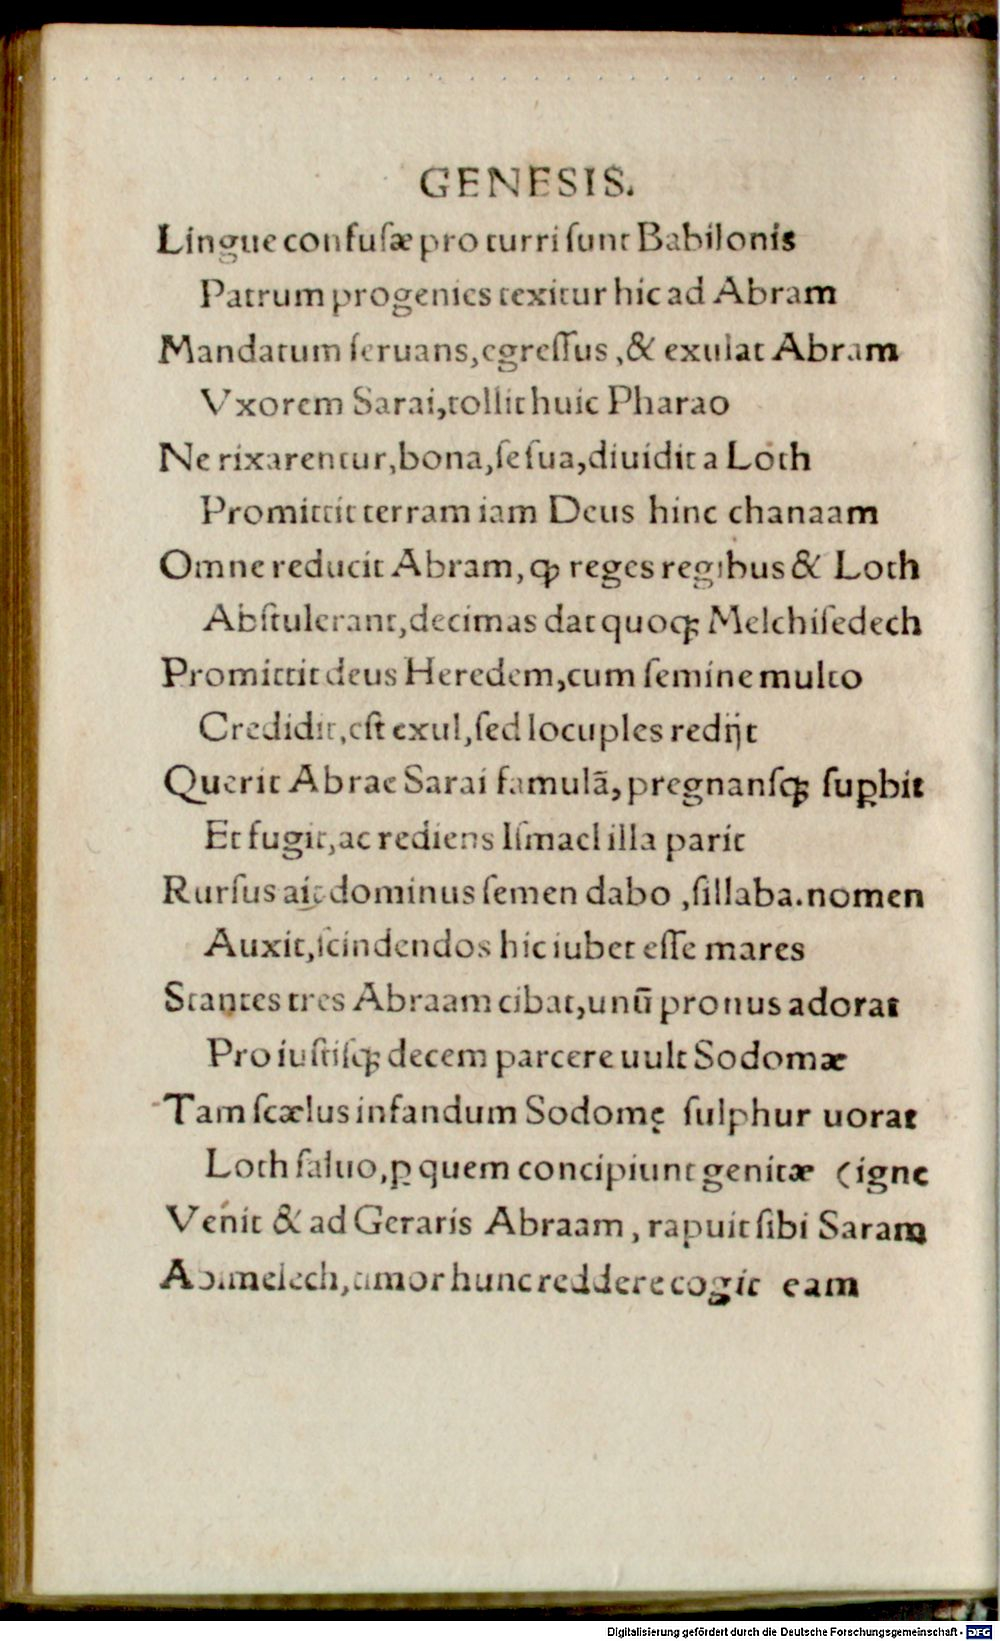 GENESIS.
Lingue confusæ pro turri sunt Babilonis
Patrum progenies texitur hic ad Abram
Mandatum seruans, egressus ,& exulat Abram
Vxorem Sarai, tollit huic Pharao
Ne rixarentur, bona, se sua, diuidit a Loth
Promittit terram iam Deus hinc chanaam
Omne reducit Abram, ꝙ reges regibus & Loth
Abstulerant, decimas dat quoqꝫ Melchisedech
Promittit deus Heredem, cum semine multo
Credidit, est exul, sed locuples redijt
Querit Abrae Sarai famulā, pregnansqꝫ suꝑbit
Et fugit, ac rediens Ismael illa parit
Rursus ait dominus semen dabo ,sillaba. nomen
Auxit, scindendos hic iubet esse mares
Stantes tres Abraam cibat, unū pronus adorat
Pro iustisqꝫ decem parcere uult Sodomæ
Tam scælus infandum Sodomę sulphur uorat
Loth saluo, ꝑ quem concipiunt genitæ (igne
Venit & ad Geraris Abraam , rapuit sibi Saram
Abimelech, timor hunc reddere cogit eam
Digitalisierung gefördert durch die Deutsche Forschungsgemeinschaft - DFG